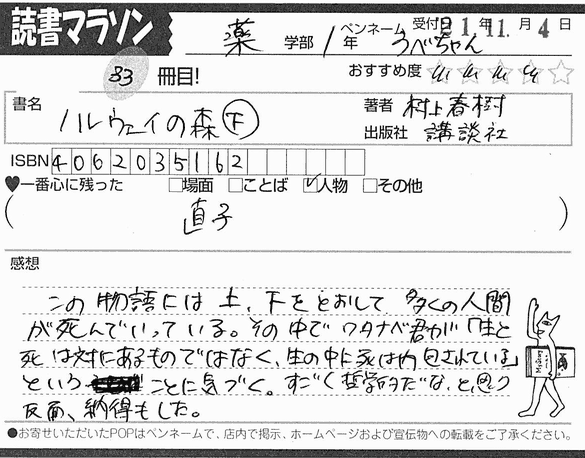 読書マラソン
薬 学部 1年 ペンネーム うべちゃん 受付日 21年11月4日
33冊目!
おすすめ度
書名 ハルウェイの森(下)
著者 村上春樹
出版社 講談社
ISBN 4062035162
♥一番心に残った □場面 □ことば ☑人物 □その他
( 直子 )
感想
この物語には上、下をとおして多くの人間
が死んでいっている。その中でワタナベ君が「生と
死は対にあるものではなく、生の中に死は内包されている」
という ことに気づく。すごく哲学的だな、と思う
反面、納得もした。
●お寄せいただいたPOPはペンネームで、店内で掲示、ホームページおよび宣伝物への転載をご了承ください。